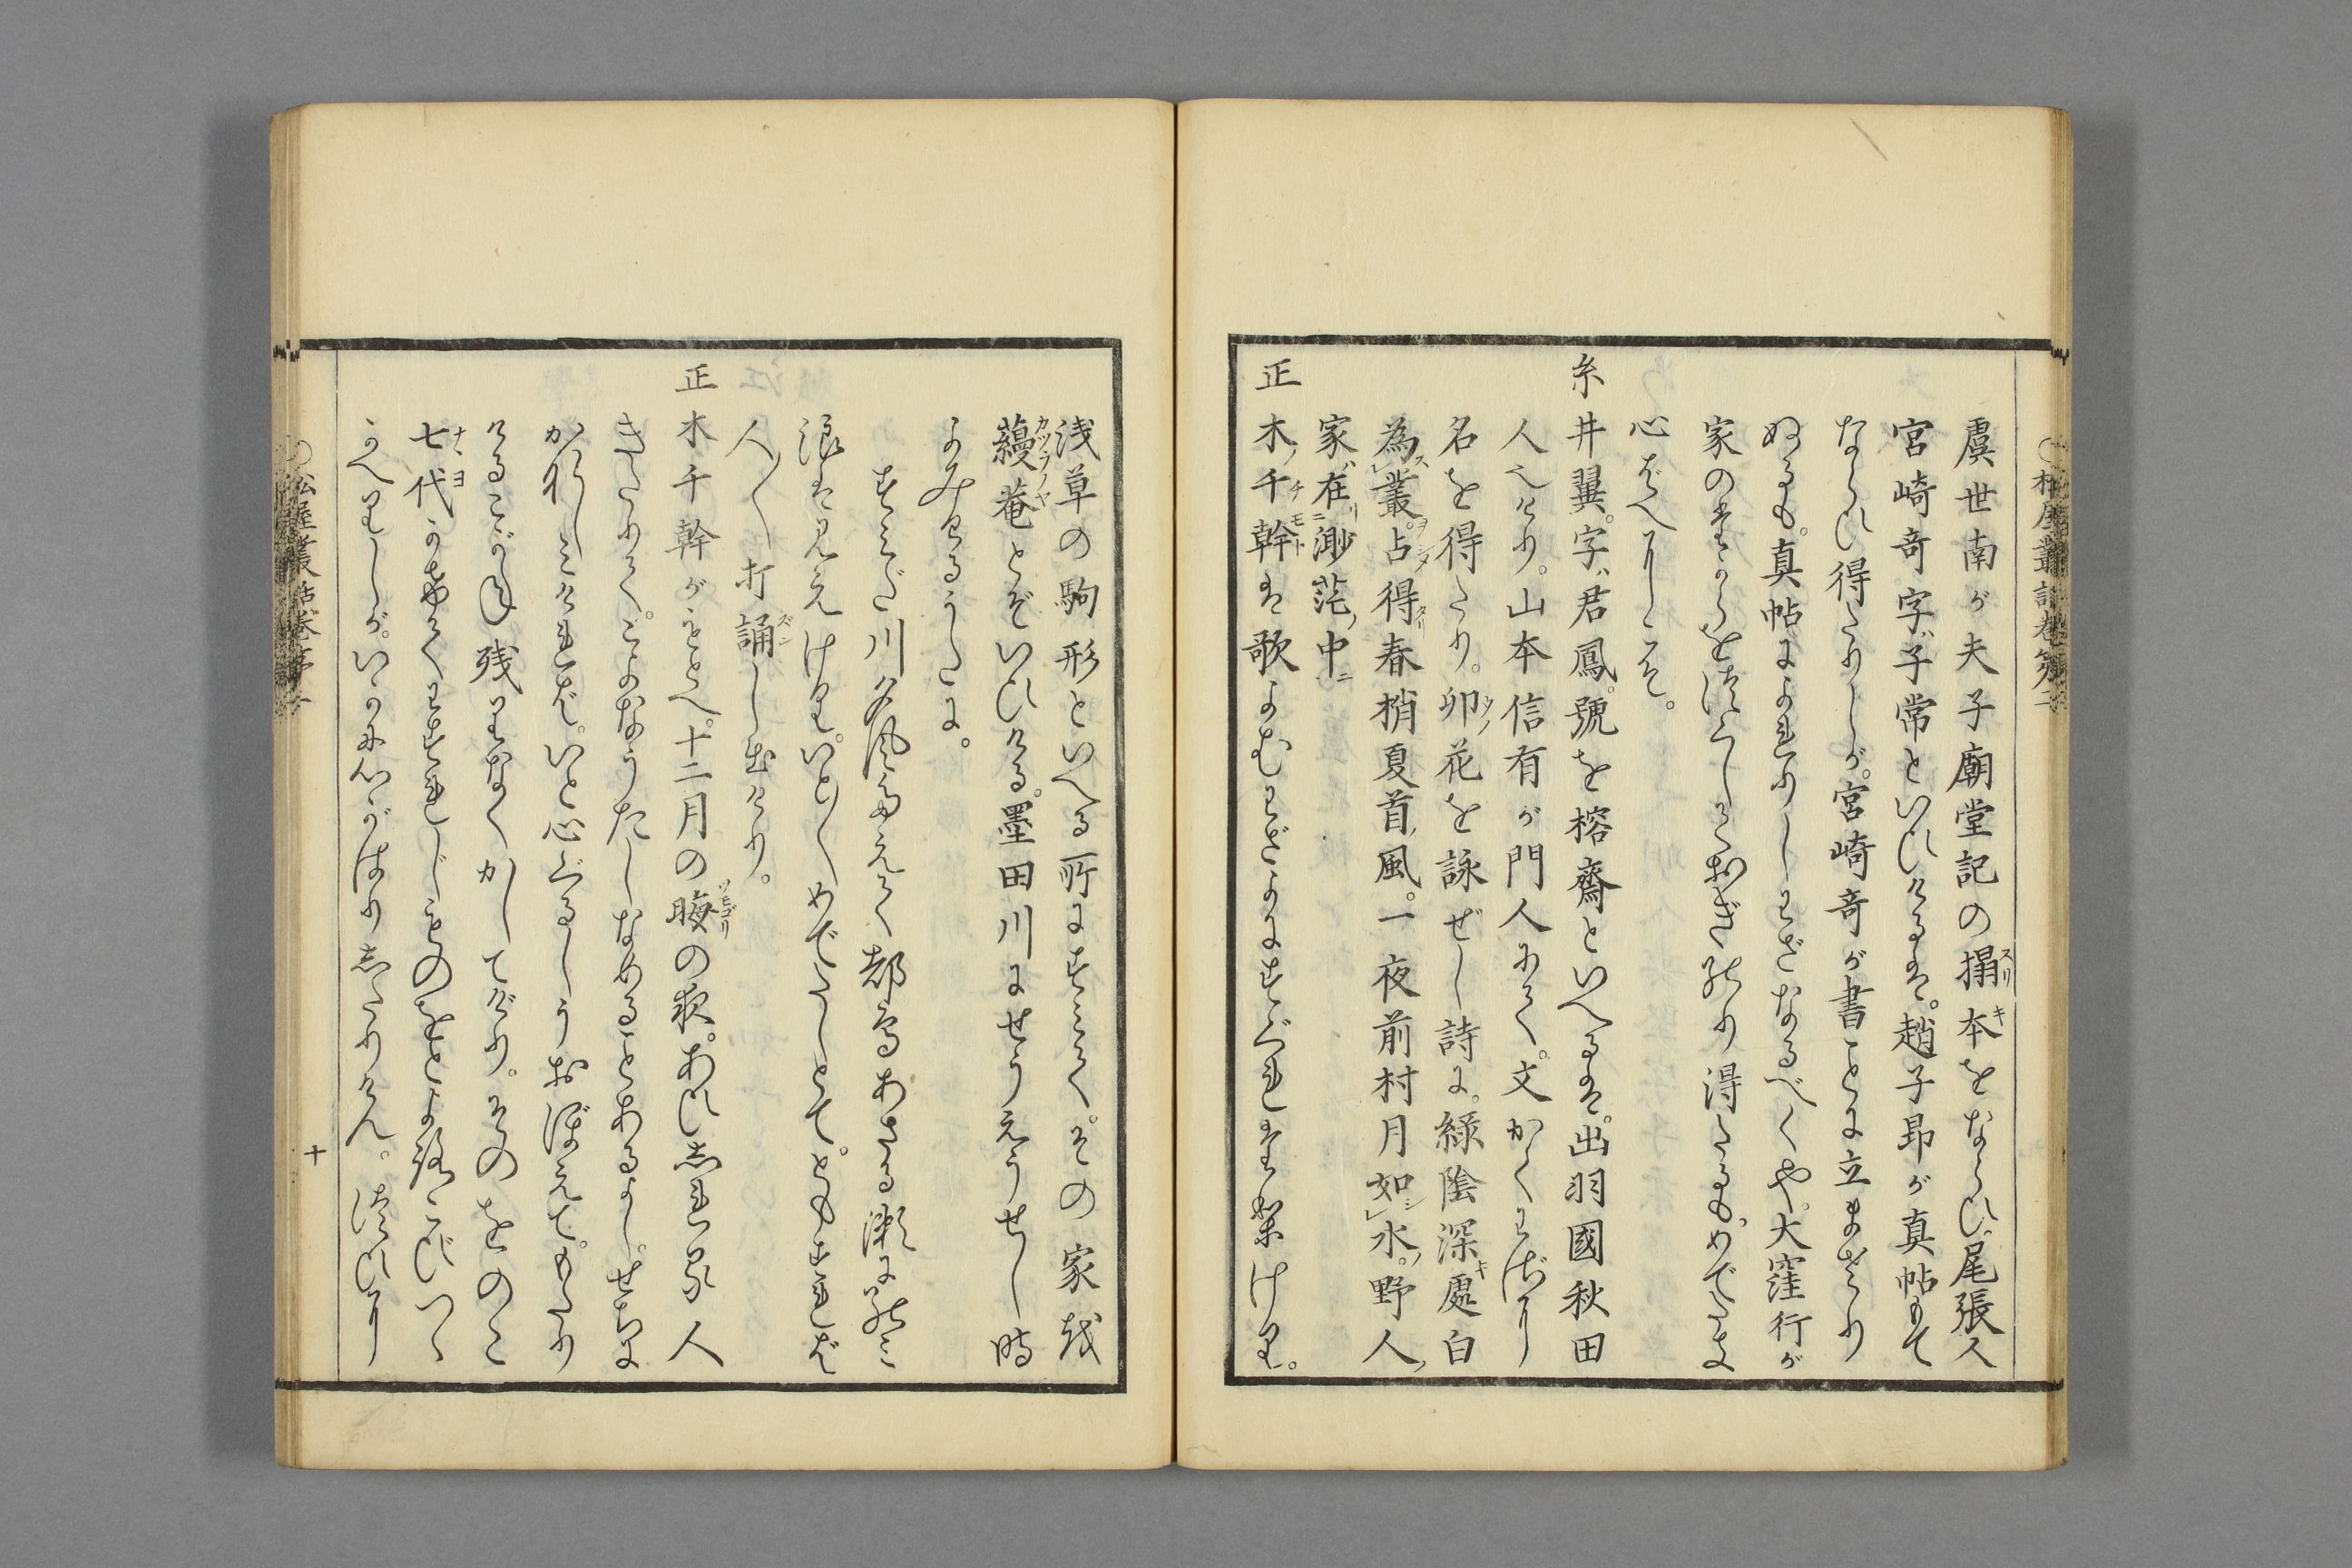 虞世南が夫子廟堂記の搨本をならひ。尾張人
宮崎奇字ハ子常といひけるは。趙子昂が真帖もて
ならひ得たりしが。宮崎奇が書ことに立まさり
ぬるも。真帖によれりしわざなるべくや。大窪行が
家の
心ばへにこそ。
糸井翼。字ハ君鳳。號を榕齋といへるは。出羽國秋田
人也けり。山本信有が門人にて。文かくわざに
名を得たり。卯花を詠ぜし詩に。緑陰深處白
為叢。占得春梢夏首風。一夜前村月如水。野人
家在渺茫中
正木千幹は歌よむわざによにすぐれ
浅草の駒形といへる所にすみて。その家を
蘰菴とぞいひける。墨田川にせうえうせし時
よみけるうたに。
すみだ川夕風たえて都鳥あさる瀬にのみ
浪は見えけり。いと〳〵めでたしとて。ともすれば
人〳〵打誦し出けり。
正木千幹がもとへ。十二月の晦の夜。あひしれる人
きたりて。ごようなうたしなめることあるよし。せちに
かれしみければ。いと心ぐるしうおぼえて。もたり
けるこがね残りなくかしてけり。そのをのこ
七代
かへりしが。いかに心がはりしたりけん。
松屋叢話巻第二
十